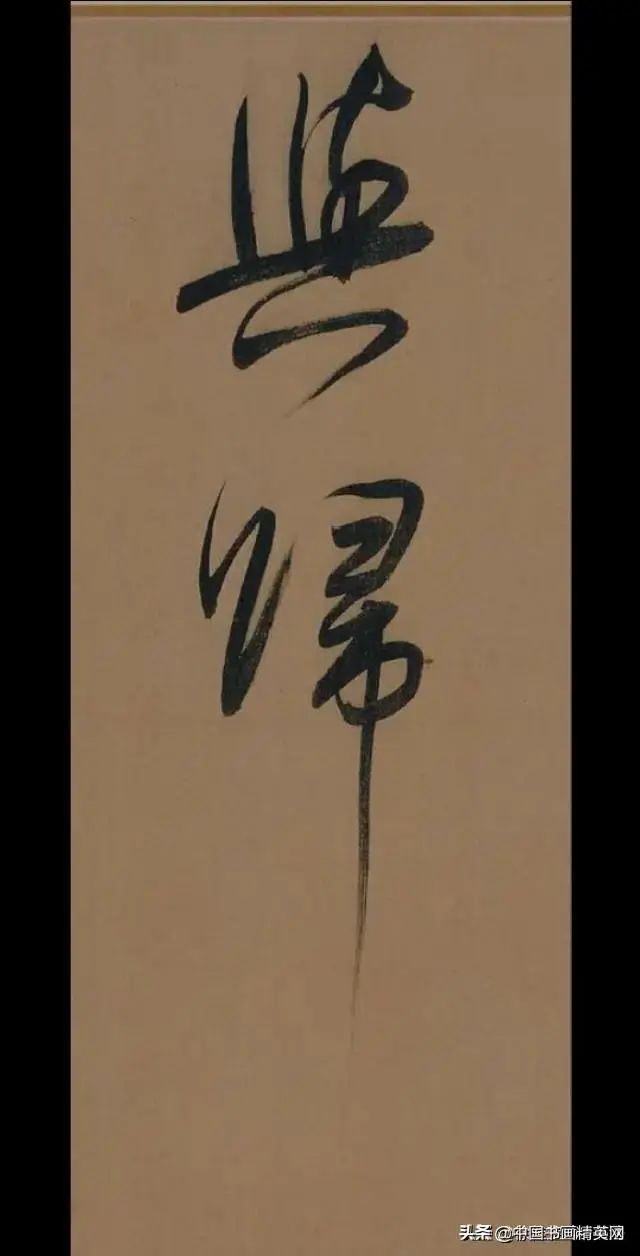 與歸
头条 @中国书画精英网